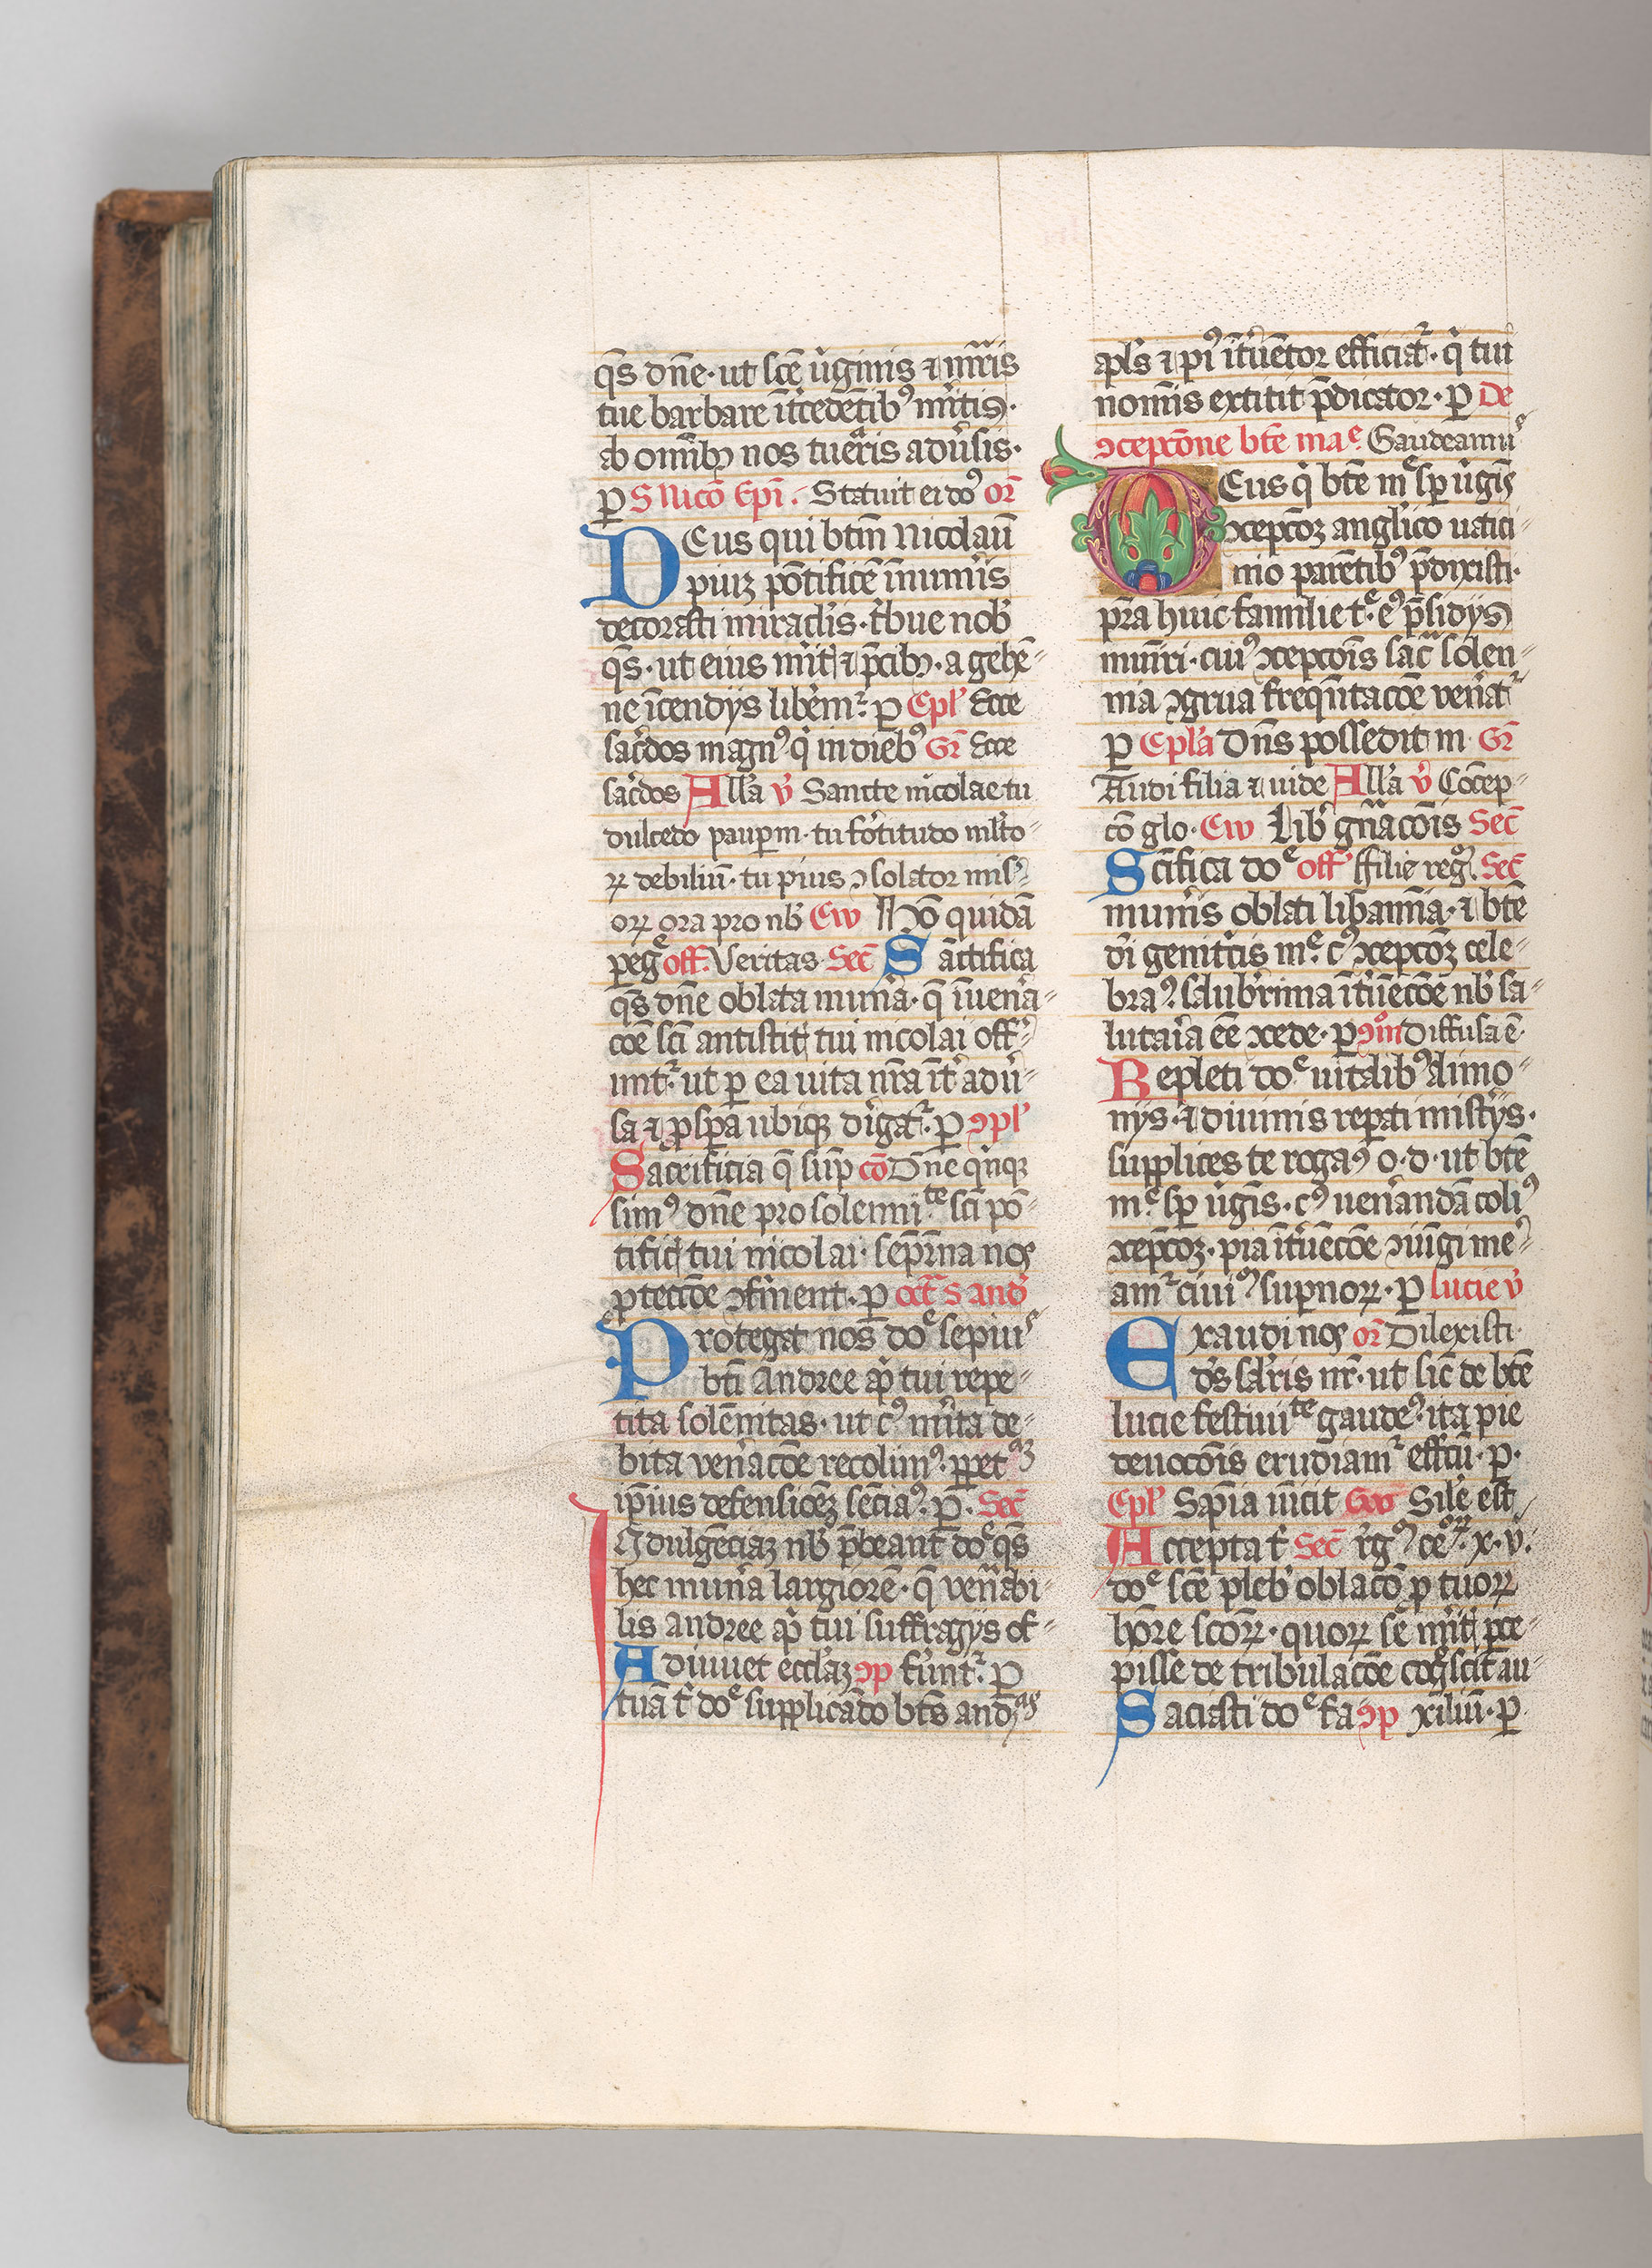 q̄s dn̄e · ut scē v̓ginis ⁊ mr̄is
tue barbare īt̓cedētib⁹ m̓itis ·
ab omīb⁊ nos tuearis adv̓sis ·
ꝑ S Nicō Ep̄i · Statuit ei do⁹ or̄
Deus qui btm̄ Nicolaū
piuꝫ pōtificē īnum̓is
decorasti miracl̓is · t̓bue nob̓
q̄s · ut eius m̓itꝭ ⁊ p̄cib⁊ · a gehē-
ne īcendijs libem̓ᷣ ꝑ Epl̓ Ecce
sac̓dos magn⁹ q̓ in dieb⁹ Gr̄ Ecce
sac̓dos All̓a v̓ Sancte nicolae tu
dulcedo paupm̄ · tu fortitudo ml̓to-
ꝝ debiliū · tu pius ↄsolator mis̓-
oꝝ ora pro nb̓ Ew Hō quidā
pegͤ off̓ Veritas Sec̄ Sāctifica
q̄s dn̄e oblata mun̓a · q̄ ī uen̓a-
cōe sc̄i antistitꝭ tui nicolai off̓-
untᷣ ut ꝑ ea uita nr̄a īt̓ adv̓-
sa ⁊ ꝓsꝑa ubiqꝫ dir̓gatᷣ · ꝑ ↄpl̓
Sacrificia q̄ sūp cō Dn̄e q̓nqꝫ
sim⁹ dn̄e pro solenniᵗᵉ sc̄i pō-
tificꝭ tui nicolai · sep̄r̄na nos
ꝓtectōe ↄfirment · ꝑ oct̄ S and̓
Protegat nos doͤ sepiuˢ
bt̄i Andree ap̓ tui repe-
tita solēnitas · ut c⁹ m̓ita de-
bita ven̓acōe recolim⁹ · ꝑpetᵃꝫ
ip̄ius defensiōeꝫ sēcia⁹ · ꝑ · Sec̄
Indulgēciaꝫ nb̓ p̄beant doͤ q̄s
hec mun̓a largiorē · q̄ ven̓abi-
lis andree ap̓ tui suffragijs of-
Adiuuet eccl̓aꝫ ↄp fer̓untᷣ · ꝑ
tuā t̓ doͤ supplicādo bt̄s andʳᵃˢ
apl̓s ⁊ pi⁹ īt̓vētor efficiatᷣ · q̓ tui
nom̄is extitit p̄dicator · ꝑ De
ↄcepcōne bt̄e maͤ Gaudeamuˢ
Deus q̓ bt̄e mͤ sp̱ v̓gīs
ↄcepcōꝫ angl̓ico uatici-
nio parētib⁹ p̄dixisti ·
pr̄a huic familie tͤ · e⁹ p̄sidijs
mun̄iri · cui⁹ ↄcepcōis sac̄ solen-
nia ↄgrua freq̄ntacōe ven̓atᷣ
ꝑ Epl̓a Dn̄s possedit m · Gr̄
Audi filia ⁊ uide All̓a v̓ Cōcep-
cō glo · Ew Lib̓ gn̄acōis Sec̄
Sc̄ifica doͤ off̓ ffilie reg̓ Sec̄
mun̓is oblati libamīa · ⁊ bt̄e
d̓i genit̓cis mͤ · c⁹ ↄcepcōꝫ cele-
bra⁹ · salub̓rima īt̓vēcōe nb̓ sa-
lutar̓ia eē ↄcede · ꝑ ↄm̄ Diffusa ē ·
Repleti doͤ vitalib⁹ alimo-
nijs · ⁊ divinis rep̱ati mist̓ijs ·
supplices te roga⁹ o · d · ut bt̄e
mͤ sp̱ v̓gīs · c⁹ uen̓andā coli⁹
ↄcepcōꝫ · pia īt̓vēcōe ↄiūgi me-
amᷣ ciui⁹ sup̱noꝝ · ꝑ lucie v̓
Exaudi nos or̄ Dilexisti ·
d̓s sal̓ris nr̄ · ut sic̄ de bt̄e
lucie festiuiᵗᵉ gaude⁹ · ita pie
deuocōis erudiamᷣ effc̄u · ꝑ ·
Epl̓ Sap̄ia uīcit Sil̓e est
Accepta t̓ Sec̄ x · v̓ ·
doͤ scē pleb̓ oblacō ꝓ tuoꝝ
hōre sc̄oꝝ · quoꝝ sē m̓itꝭ ꝑce-
pisse de tribulacōe cog̓scit au-
Saciasti doͤ fa ↄp xiliū · ꝑ